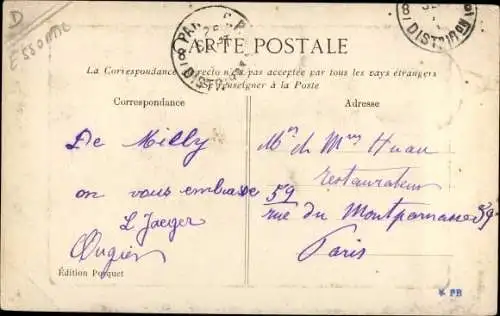 D
Essonne
CARTE POSTALE
La Correspondance au recto n'est pas acceptée par tous les pays étrangers
Se renseigner à la Poste
Correspondance
Adresse
De Milly
on vous embrasse
L Jaeger
Mr & Mme Huau
restaurateur
59
rue du Montparnasse 59
Paris
Édition Posquet
PB